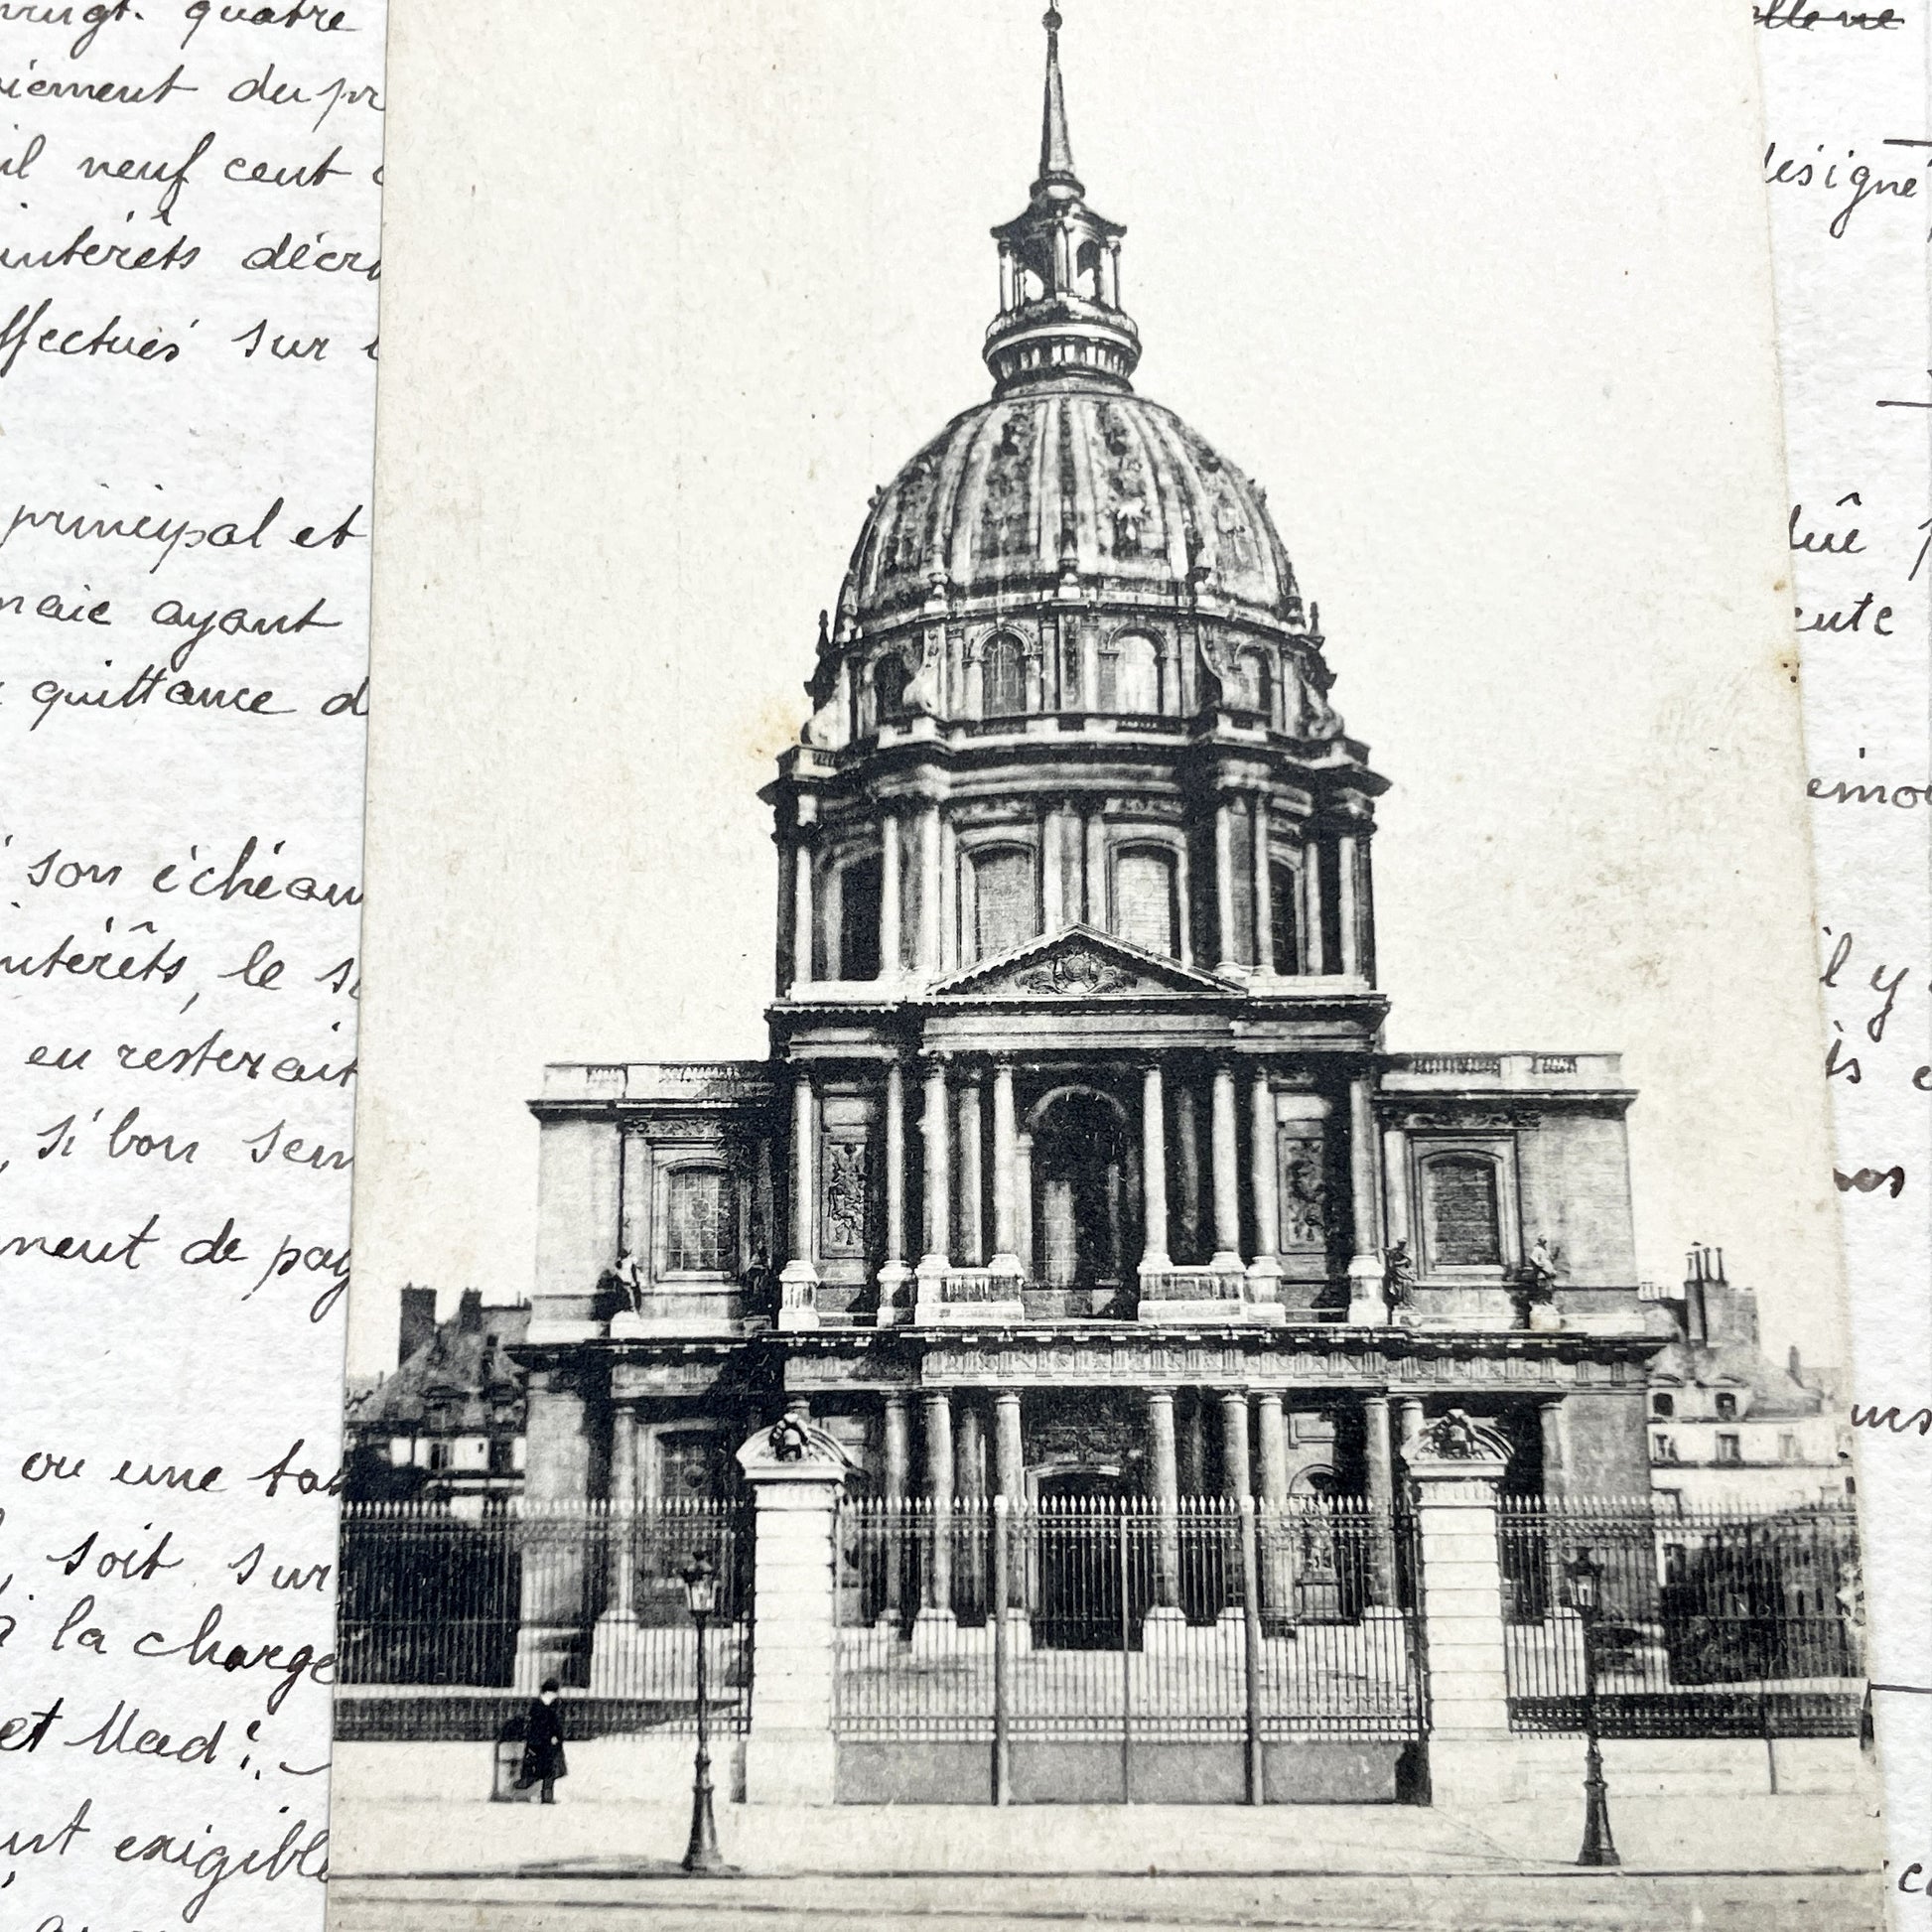 vingt. quatre
iement du pr
il neuf cent
intérêts décro
ffectués sur
principal et
naie ayant
quittance d
son échéan
intérêts, le s
en resterait
, si bon sem
ment de pay
ou une
, soit sur
à la charge
et Mad:
exigible
désigné
dûe p
ente
emo
il y
is
nos
urs